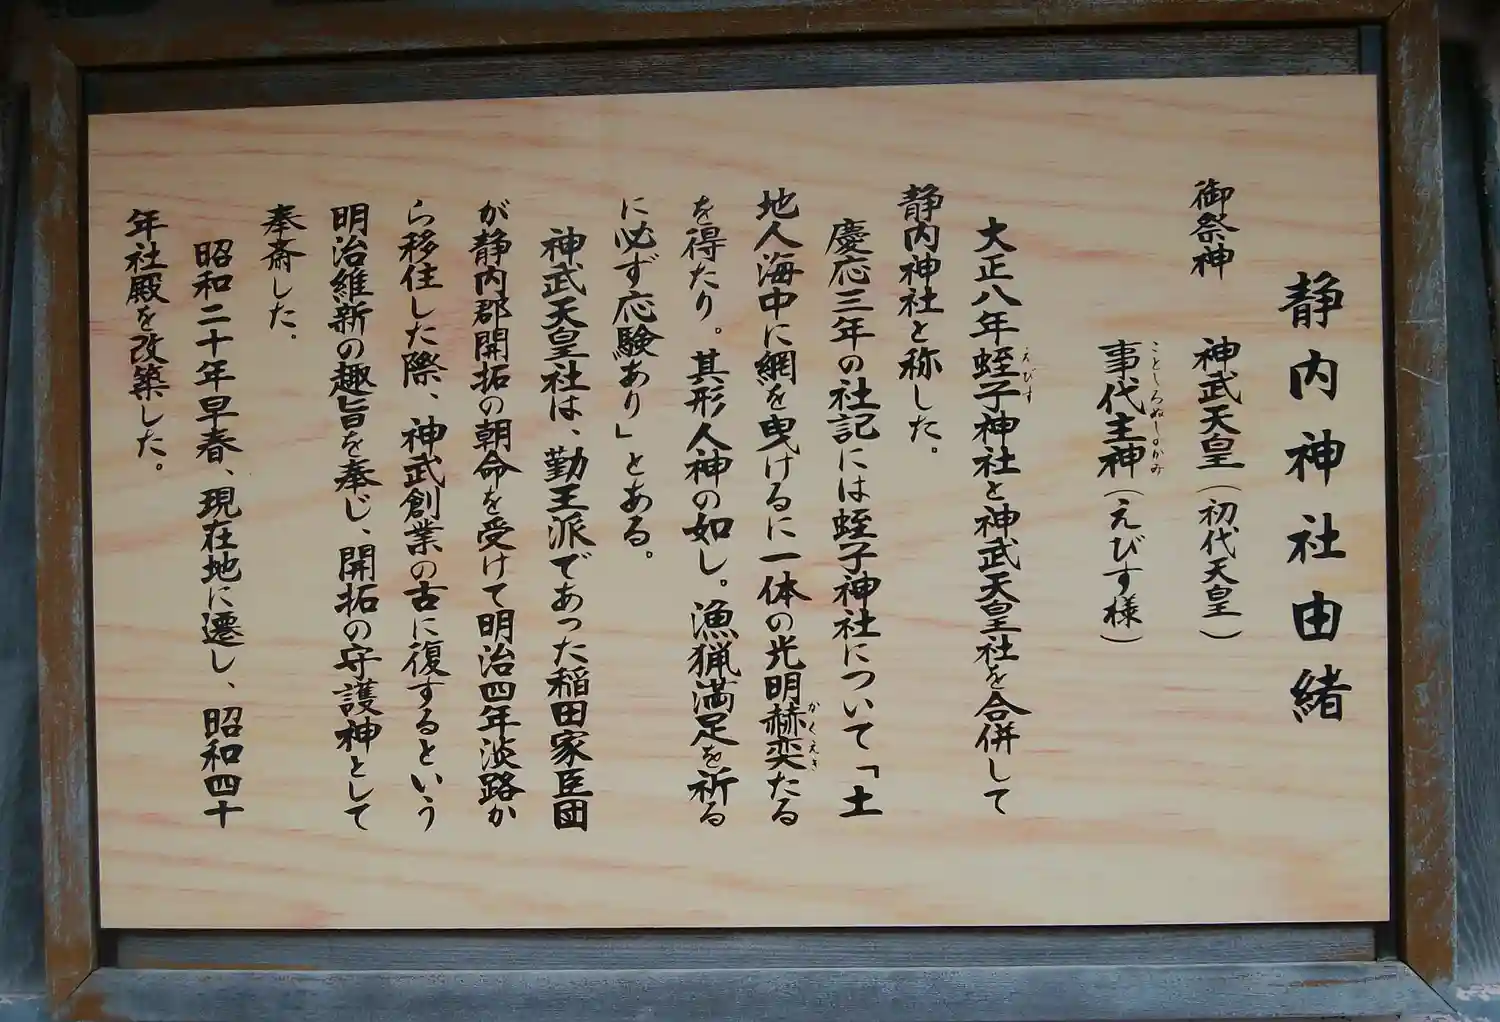 静内神社由緒
御祭神　神武天皇（初代天皇）
事代主神（えびす様）
ことしろぬしのかみ
大正八年蛭子神社と神武天皇社を合併して
えびす
静内神社と称した。
慶応三年の社記には蛭子神社について「土
地人海中に網を曳けるに一体の光明赫奕たる
かくえき
を得たり。其形人神の如し。漁猟満足を祈る
に必ず応験あり」とある。
神武天皇社は、勤王派であった稲田家臣団
が静内郡開拓の朝命を受けて明治四年淡路か
ら移住した際、神武創業の古に復するという
明治維新の趣旨を奉じ、開拓の守護神として
奉斎した。
昭和二十年早春、現在地に遷し、昭和四十
年社殿を改築した。